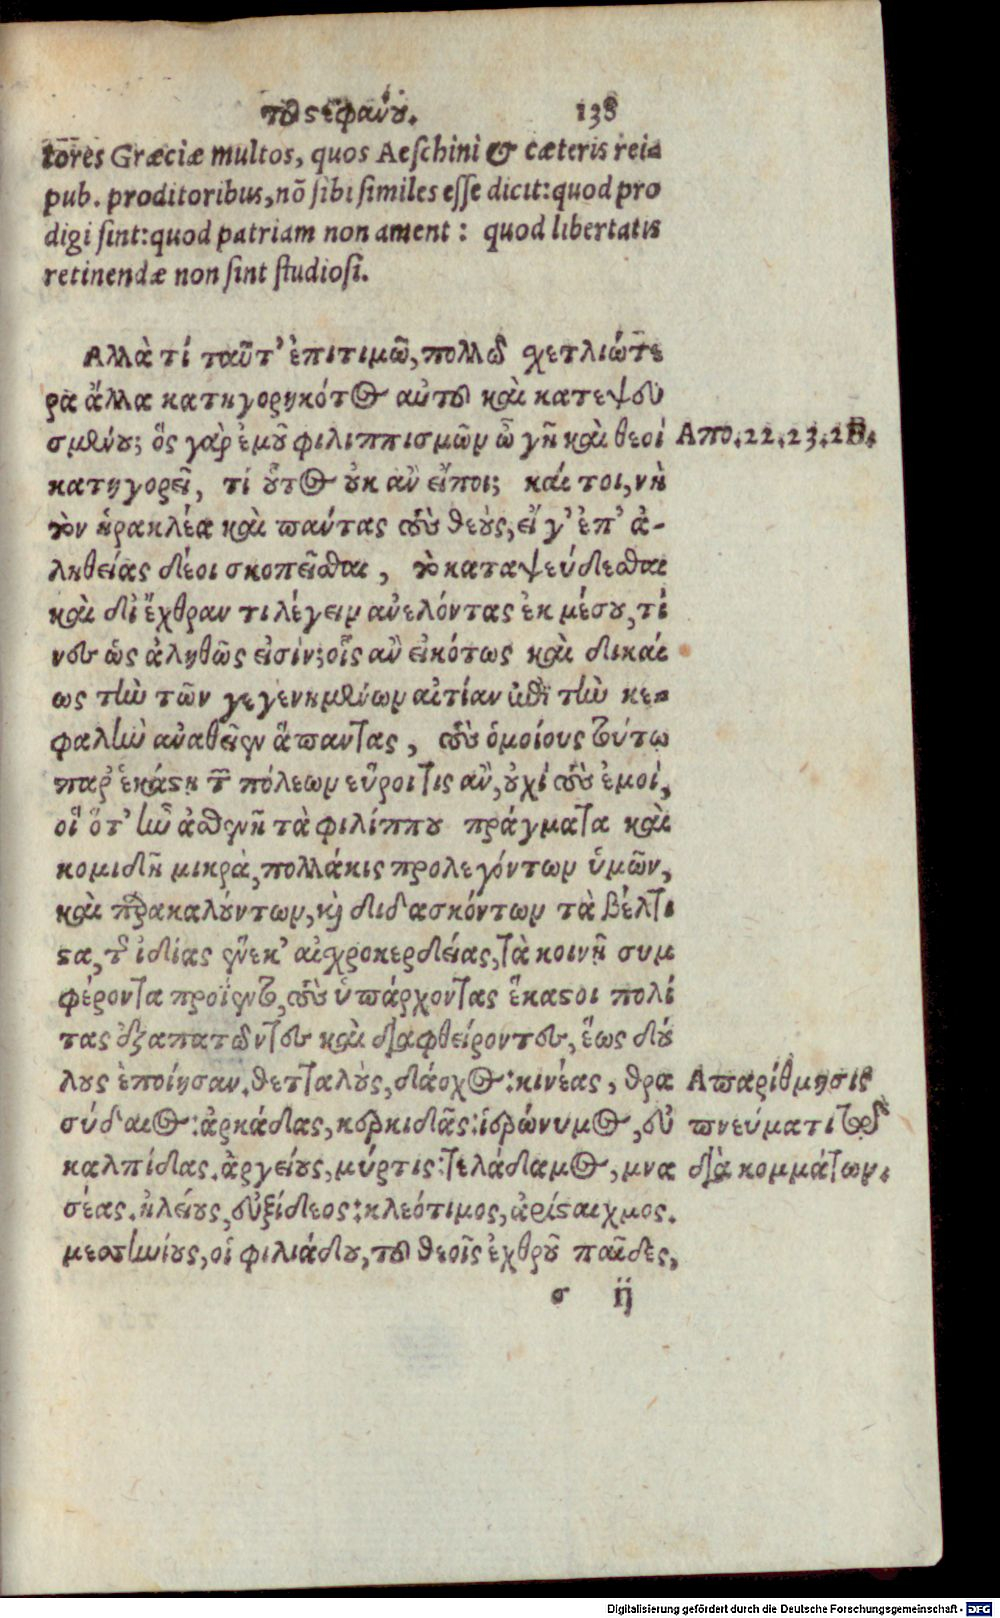 τοῦ στεφάνου. 138
tores Græciæ multos, quos Aeſchini & cæteris rei=
pub. proditoribus, nō ſibi ſimiles eſſe dicit: quod pro
digi ſint: quod patriam non ament: quod libertatis
retinendæ non ſint ſtudioſi.
Αλλὰ τί ταῦτ' ἐπιτιμῶ, πολλῷ σχετλιώτε
ρα ἄλλα κατηγορηκότος αὐτοῦ καὶ κατεψευ
σμένου; ὃς γὰρ ἐμοῦ φιλιππισμῶμ ὦ γῆ καὶ θεοί
Απο. 22. 23. 2
κατηγορεῖ, τί οὗτος οὐκ ἂν εἴποι; καί τοι, νὴ
τὸν ἡρακλέα καὶ πάντας τοὺς θεοὺς, εἴ γ' ἐπ' ἀ-
ληθείας δέοι σκοπεῖσθαι, τὸ καταψεύδεσθαι
καὶ δι' ἔχθραν τι λέγειμ ἀνελόντας ἐκ μέσου, τί
νες ὡς ἀληθῶς εἰσίν; οἷς ἂν εἰκότως καὶ δικαί
ως τὴν τῶν γεγενημένωμ αἰτίαν ἐπὶ τὴν κε=
φαλὴν ἀναθεῖεν ἅπαντας, τοὺς ὁμοίους τούτῳ
παρ' ἑκάστῃ τῶν πόλεωμ εὕροι τις ἂν, οὐχὶ τοὺς ἐμοί,
οἳ ὅτ' ἦν ἀσθενῆ τὰ φιλίππου πράγματα καὶ
κομιδῆ μικρὰ, πολλάκις προλεγόντωμ ὑμῶν,
καὶ παρακαλούντωμ, καὶ διδασκόντωμ τὰ βέλτι
στα, τῆς ἰδίας ἕνεκ' αἰσχροκερδείας, τὰ κοινῇ συμ
φέροντα προΐεντο, τοὺς ὑπάρχοντας ἕκαστοι πολί
τας ἐξαπατῶντες καὶ διαφθείροντες, ἕως δού
λους ἐποίησαν. θετταλοὺς, δάοχος: κινέας, θρα
Απαρίθμησις
σύδαιος: ἀρκάδας, κερκιδᾶς: ἱερώνυμος, εὐ
πνεύματι
καλπίδας. ἀργείους, μύρτις: τελάδαμος, μνα
διὰ κομμάτωμ.
σέας. ἠλείους, εὐξίδεος: κλεότιμος, ἀρίσταιχμος.
μεσσηνίους, οἱ φιλιάδου, τοῦ θεοῖς ἐχθροῦ παῖδες,
σ ij
Digitalisierung gefördert durch die Deutsche Forschungsgemeinschaft - DFG